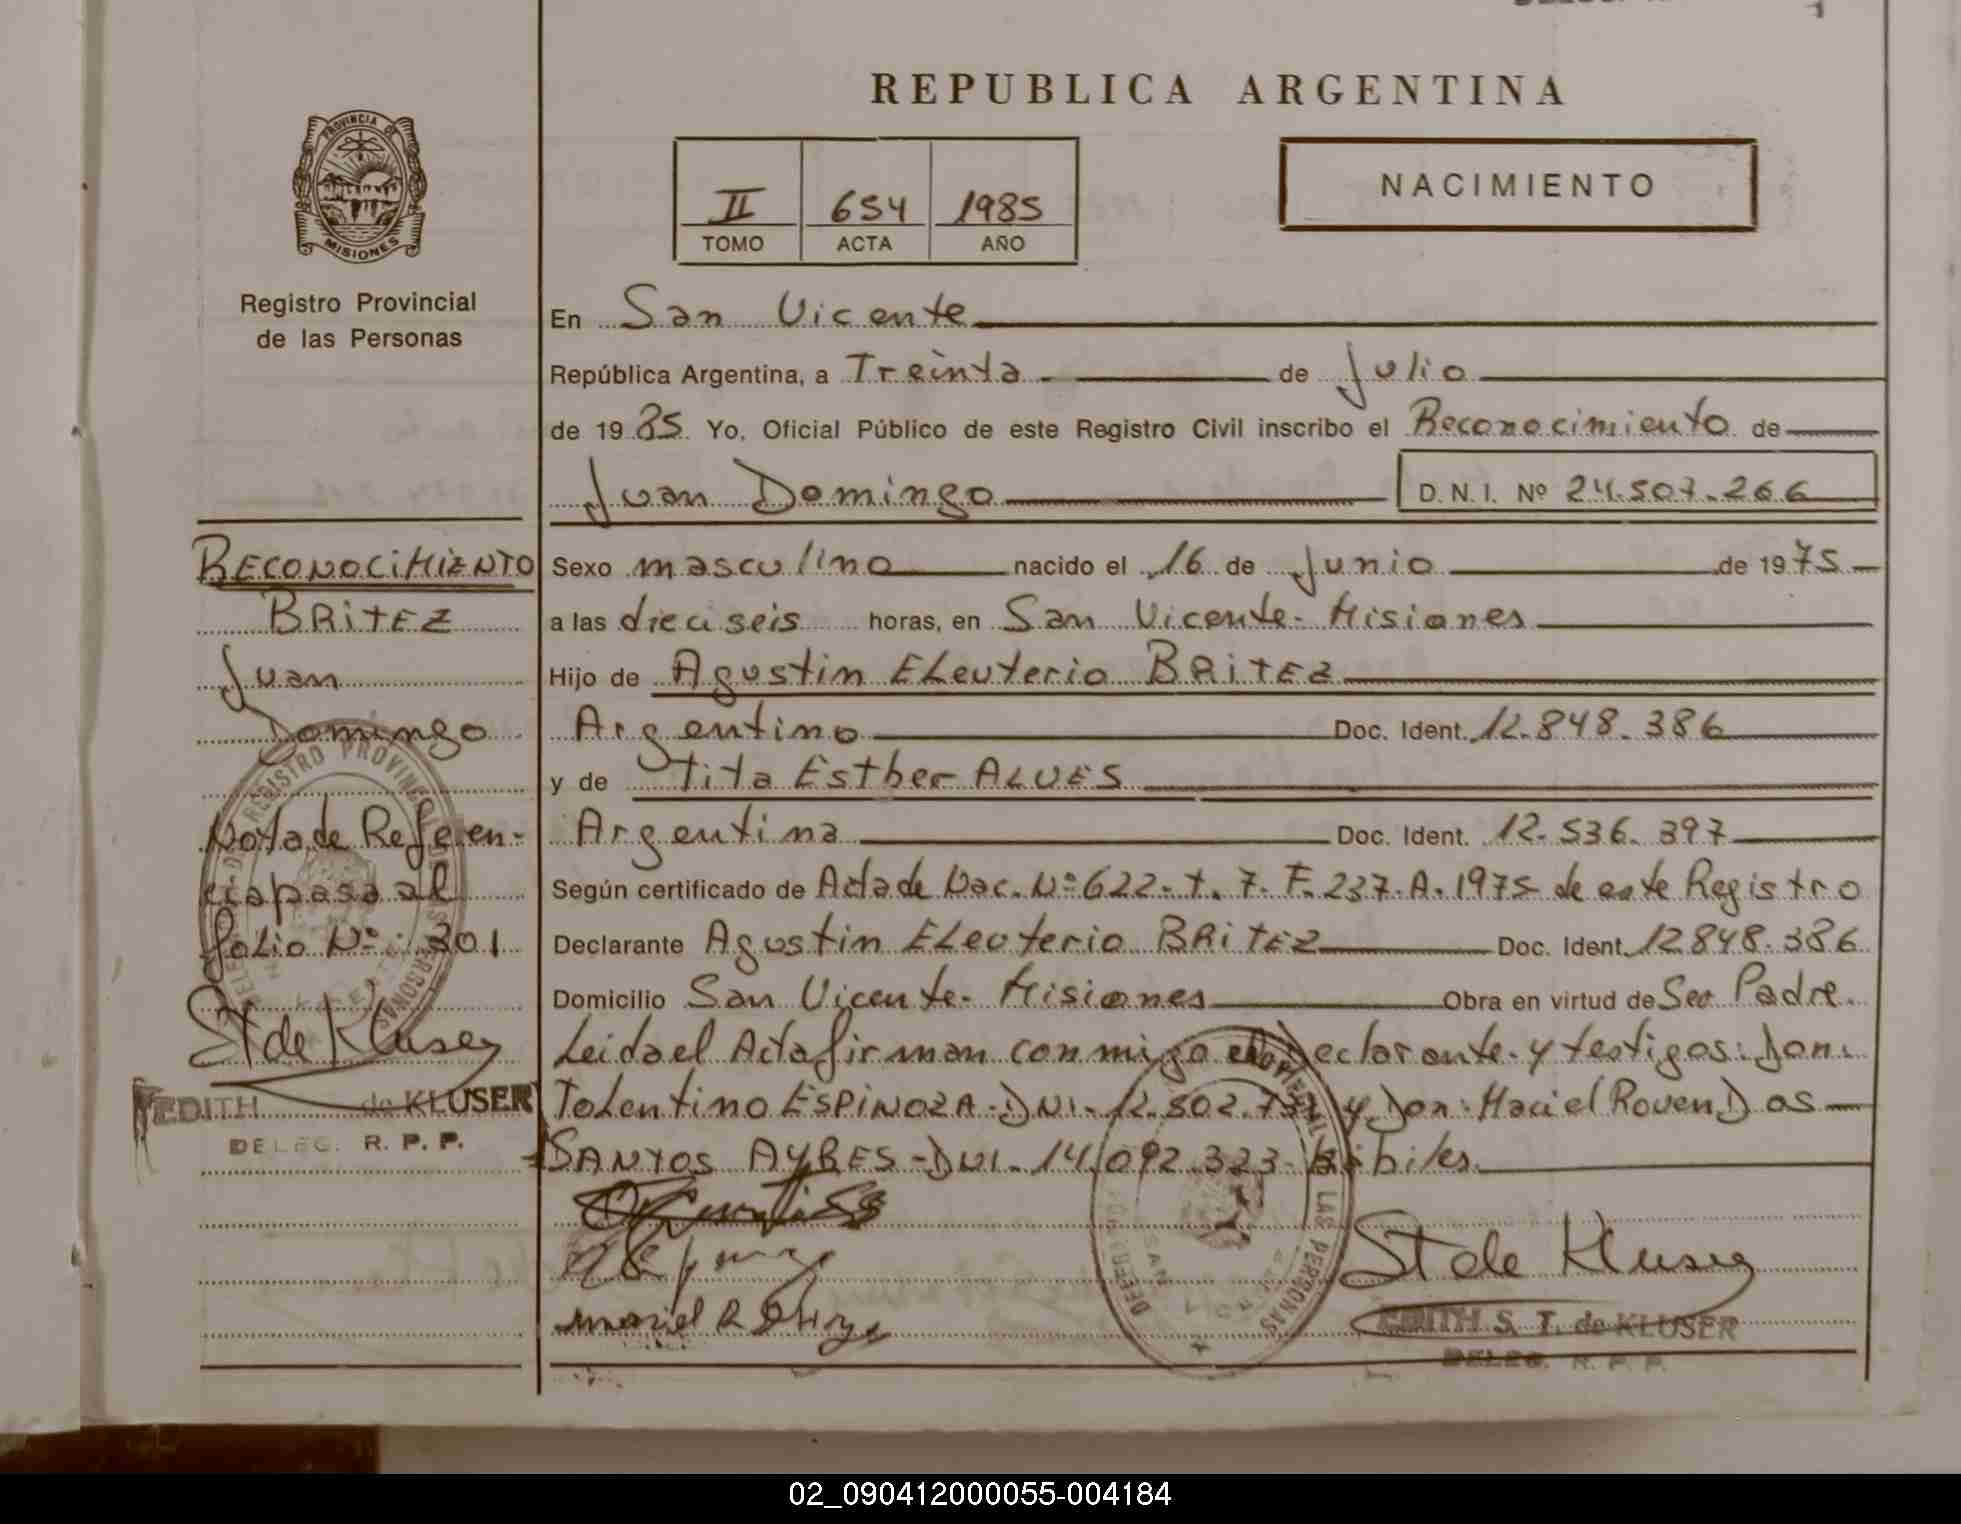 REPUBLICA ARGENTINA
PROVINCIA DE
MISIONES
Registro Provincial
de las Personas
II 654 1985
TOMO ACTA AÑO
NACIMIENTO
En San Vicente
República Argentina, a Treinta de Julio
de 1985 Yo, Oficial Público de este Registro Civil inscribo el Reconocimiento de
Juan Domingo D.N.I. Nº 24.507.266
RECONOCIMIENTO
BRITEZ
Juan
Domingo
Nota de Referen-
cia pasa al
folio Nº: 301
St de Kluser
EDITH de KLUSER
DELEG. R. P. P.
Sexo masculino nacido el 16 de Junio de 1975
a las dieciseis horas, en San Vicente - Misiones
Hijo de Agustin ELeuterio BRITEZ
Argentino Doc. Ident. 12.848.386
y de Tita Esther ALVES
Argentina Doc. Ident. 12.536.397
Según certificado de Acta de Nac. Nº 622- T. 7. F. 237. A. 1975 de este Registro
Declarante Agustin ELeuterio BRITEZ Doc. Ident. 12848.386
Domicilio San Vicente - Misiones Obra en virtud de Seo Padre.
Leida el Acta firman conmigo el Declarante y testigos: Don:
ToLentino ESPINOZA - DNI - 12.502. y Don: Maciel Rouen Dos
SANTOS AYRES - DNI - 14.092.323 - habiles.
St de Kluser
EDITH S. T. de KLUSER
DELEG. R. P. P.
02_090412000055-004184